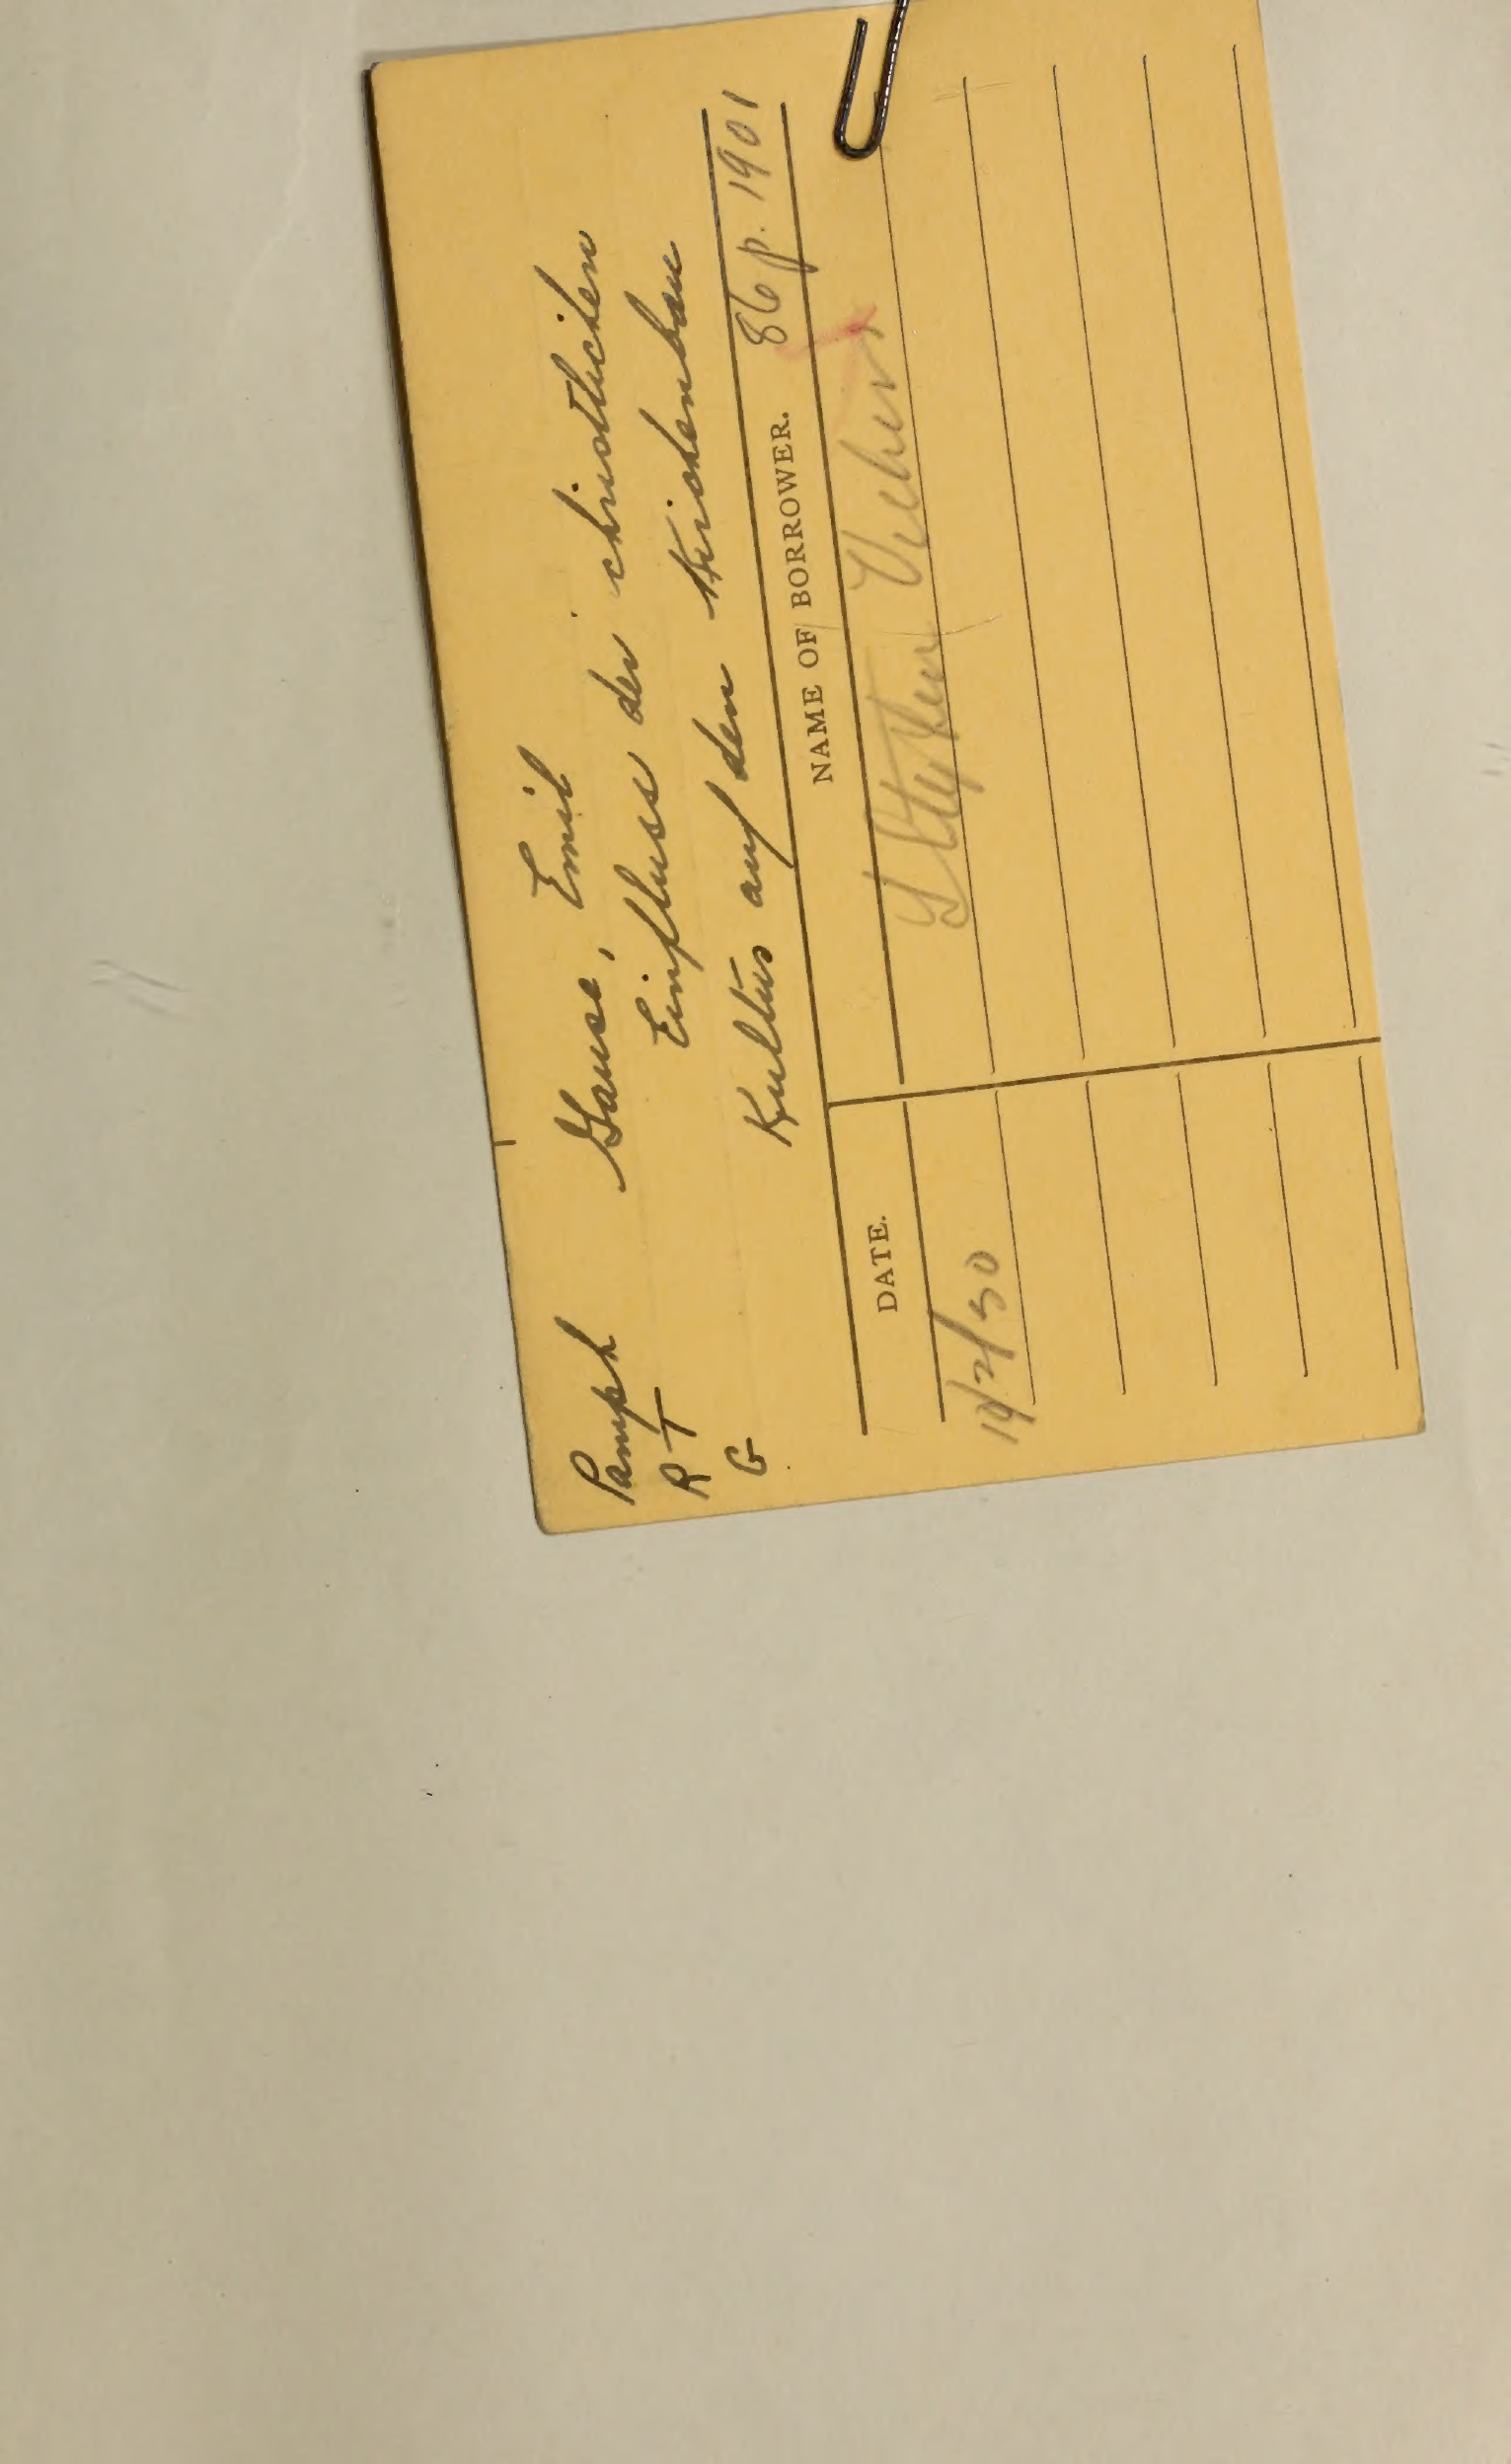 Pamph Gause, Emil
R T Einfluss der christlichen
G Kultus auf den Kirchenbau
86 p. 1901
DATE. NAME OF BORROWER.
Stephen